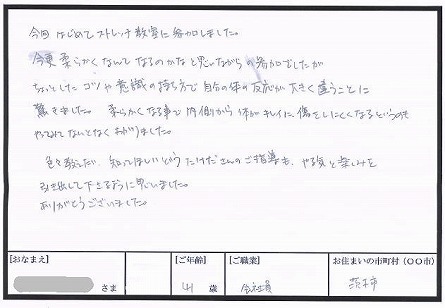 今回 はじめてストレッチ教室に参加しました。
今更 柔らかくなんてなるのかなと思いながらの参加でしたが
ちょっとした コツや意識の持ち方で自分の体の反応が大きく違うことに
驚きました。 柔らかくなる事で内側から体がキレイに、傷をしにくくなるというのも
やってみないとなくわかりました。
色々教えたい、知ってほしいというたけださんのご指導も、やる気と楽しみを
引き出して下さるように思いました。
ありがとうございました。
[おなまえ] さま
[ご年齢] 41 歳
[ご職業] 会社員
お住まいの市町村(○○市) 茨木市